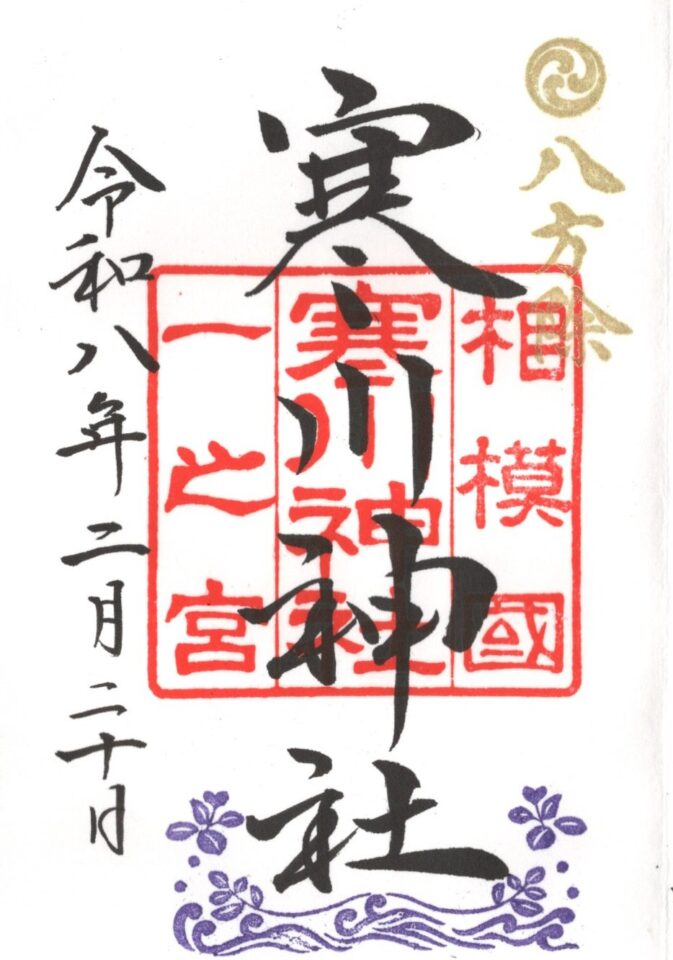 八方除
相模國
寒川神社
一之宮
寒川神社
令和八年二月二十日